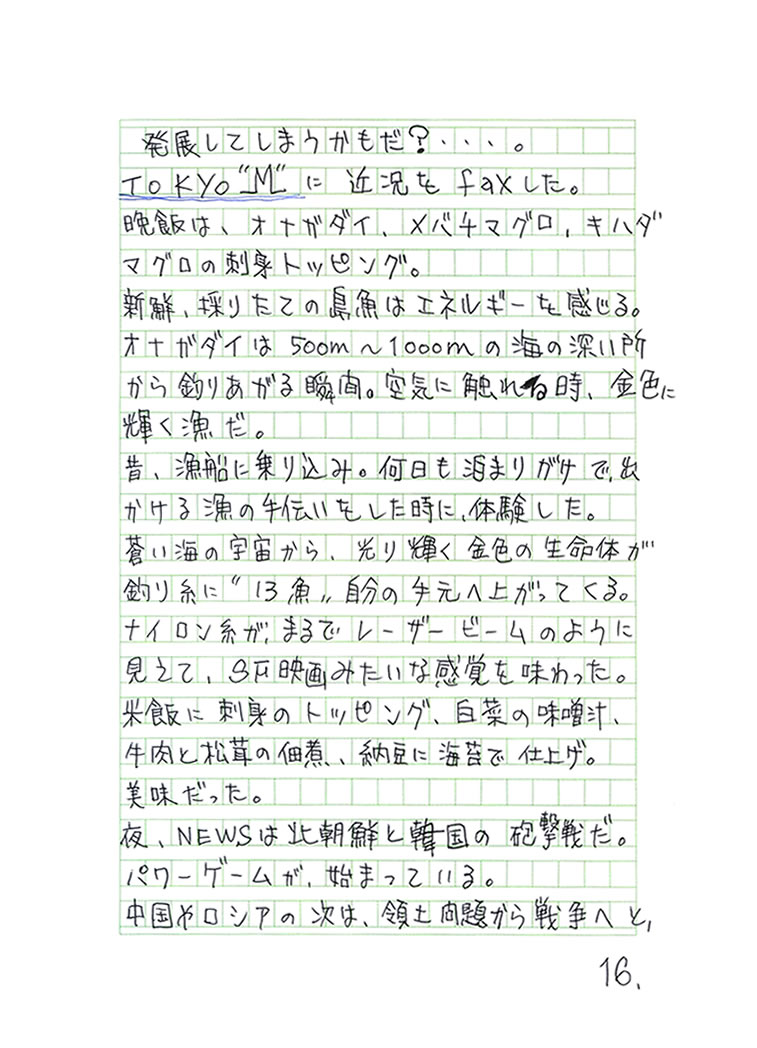 発展してしまうかもだ?・・・。
TOKYO"M"に 近況を faxした。
晩飯は、オナガダイ、メバチマグロ、キハダ
マグロの刺身トッピング。
新鮮、採りたての島魚はエネルギーを感じる。
オナガダイは 500m~1000mの海の深い所
から釣りあがる瞬間。空気に触れる時、金色に
輝く漁だ。
昔、漁船に乗り込み。何日も泊まりがけで、出
かける漁の手伝いをした時に、体験した。
蒼い海の宇宙から、光り輝く金色の生命体が
釣り糸に"13魚〃自分の手元へ上がってくる。
ナイロン糸が、まるでレーザービームのように
見えて、SF映画みたいな感覚を味わった。
米飯に刺身のトッピング、白菜の味噌汁、
牛肉と松茸の佃煮、納豆に海苔で仕上げ。
美味だった。
夜、NEWSは北朝鮮と韓国の砲撃戦だ。
パワーゲームが、始まっている。
中国やロシアの次は、領土問題から戦争へと、
16.